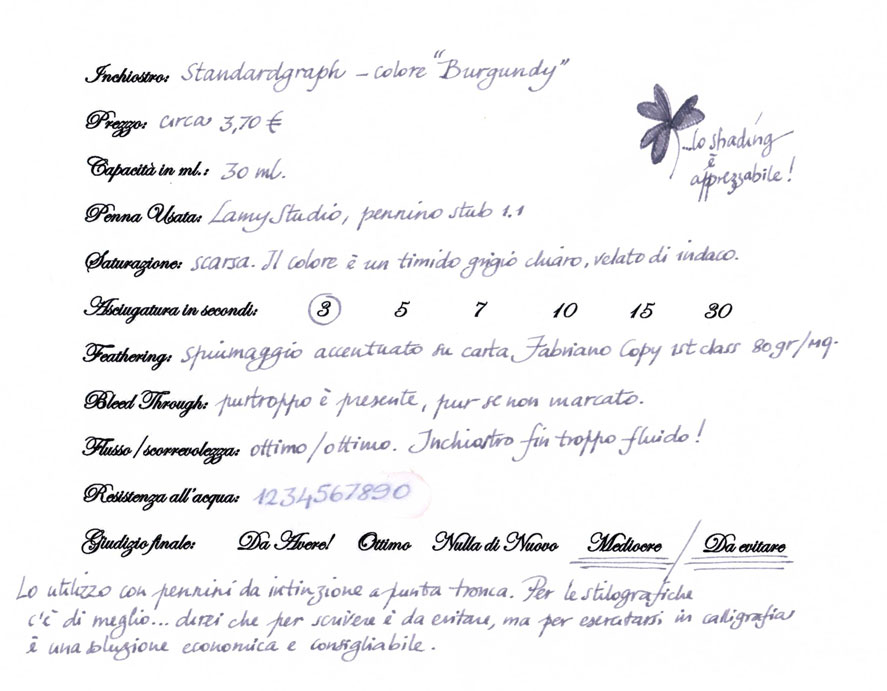 Inchiostro: Standardgraph - colore "Burgundy"
Prezzo: circa 3,70 €
...lo shading
è
apprezzabile!
Capacità in ml.: 30 ml.
Penna Usata: Lamy Studio, pennino stub 1.1
Saturazione: scarsa. Il colore è un timido grigio chiaro, velato di indaco.
Asciugatura in secondi: 3 5 7 10 15 30
Feathering: spiumaggio accentuato su carta Fabriano Copy 1st class 80 gr/mq.
Bleed Through: purtroppo è presente, pur se non marcato.
Flusso/scorrevolezza: ottimo/ottimo. Inchiostro fin troppo fluido!
Resistenza all'acqua: 1234567890
Giudizio finale: Da Avere! Ottimo Nulla di Nuovo Mediocre / Da evitare
Lo utilizzo con pennini da intinzione a punta tronca. Per le stilografiche
c'è di meglio... direi che per scrivere è da evitare, ma per esercitarsi in calligrafia
è una soluzione economica e consigliabile.